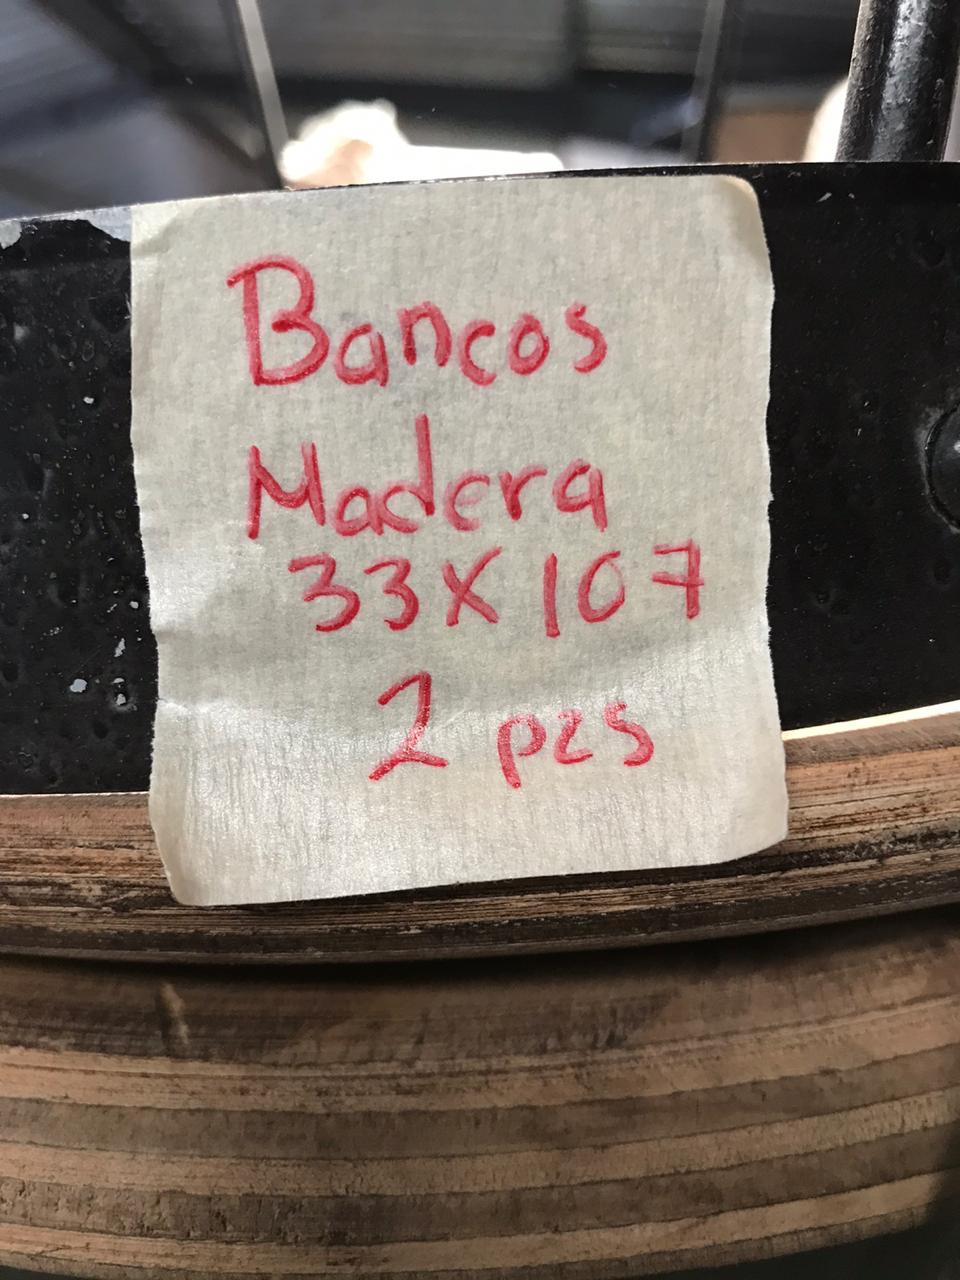 Bancos
Madera
33X107
2 pzs